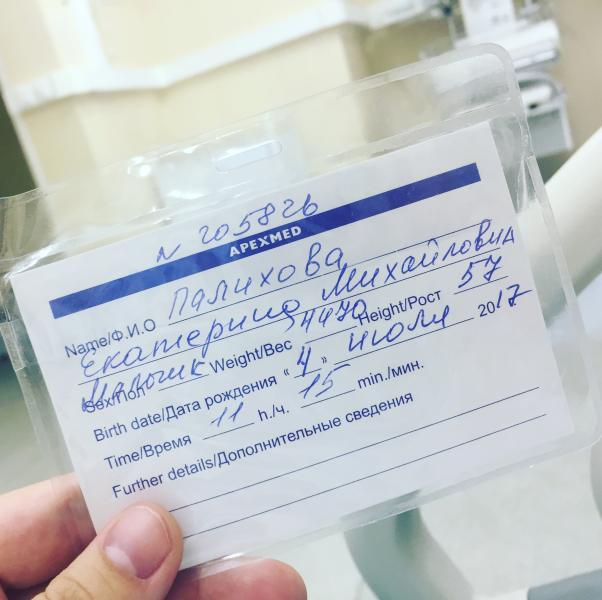 N 205826
APEXMED
Name/Ф.И.О Палихова
Екатерина Михайловна
Sex/Пол Мальчик Weight/Вес 4470 Height/Рост 57
Birth date/Дата рождения « 4 » июля 2017
Time/Время 11 h./ч. 15 min./мин.
Further details/Дополнительные сведения